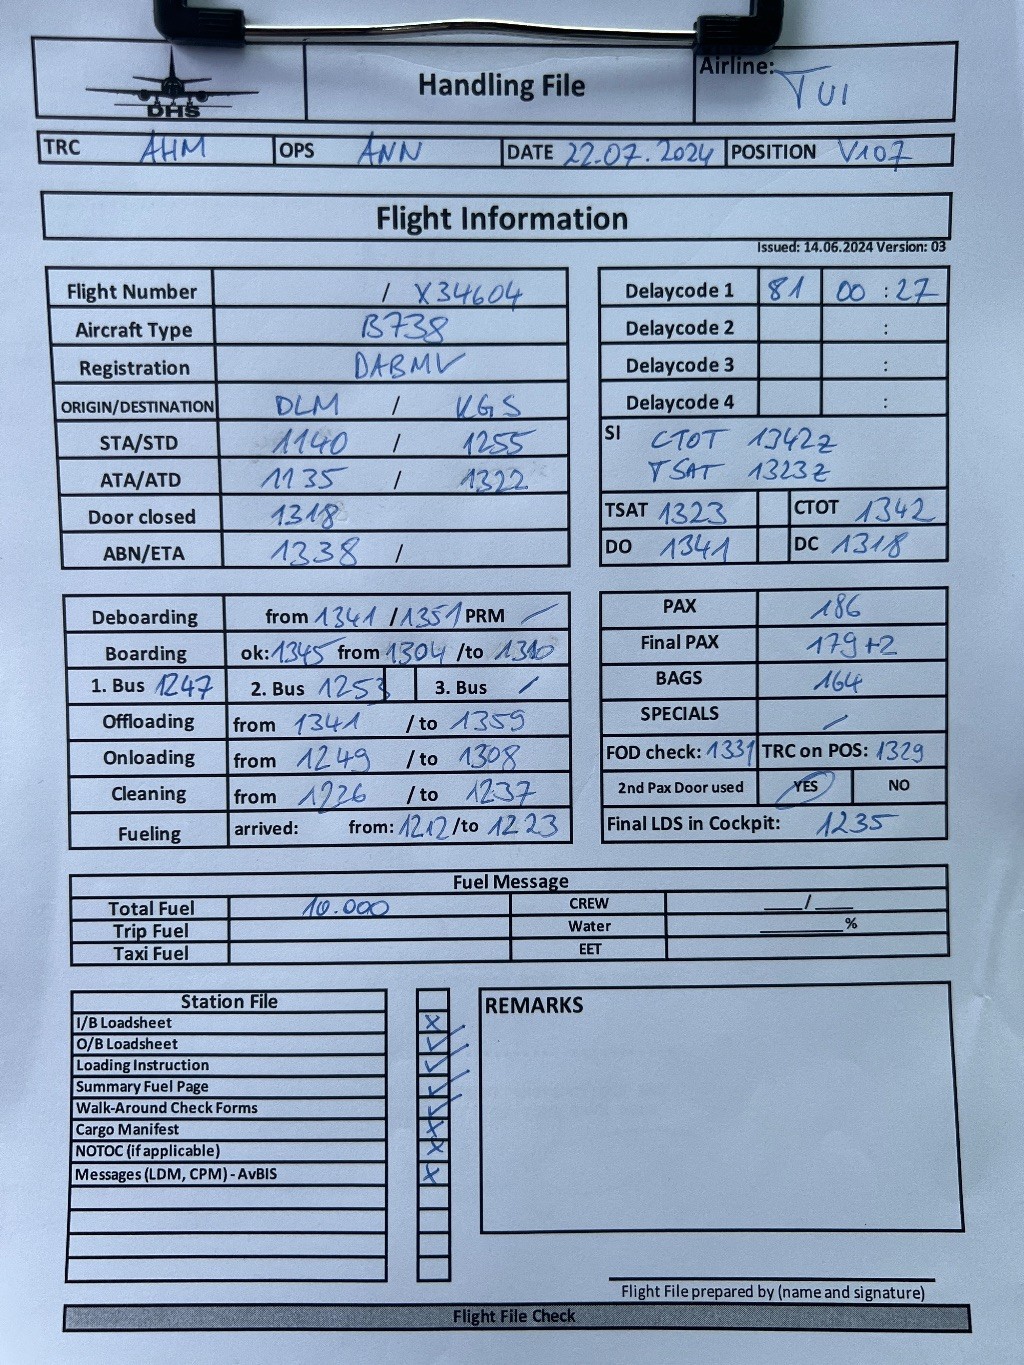 DHS
Handling File
Airline: TUI
TRC AHM OPS ANN DATE 22.07.2024 POSITION V107
Flight Information
Issued: 14.06.2024 Version: 03
Flight Number / X34604
Aircraft Type B738
Registration DABMV
ORIGIN/DESTINATION DLM / KGS
STA/STD 1140 / 1255
ATA/ATD 1135 / 1322
Door closed 1318
ABN/ETA 1338 /
Delaycode 1 81 00 : 27
Delaycode 2 :
Delaycode 3 :
Delaycode 4 :
SI CTOT 1342z
TSAT 1323z
TSAT 1323 CTOT 1342
DO 1341 DC 1318
Deboarding from 1341 / 1351 PRM /
Boarding ok: 1345 from 1304 /to 1310
1. Bus 1247 2. Bus 1253 3. Bus /
Offloading from 1341 / to 1359
Onloading from 1249 / to 1308
Cleaning from 1226 / to 1237
Fueling arrived: from: 1212 /to 1223
PAX 186
Final PAX 179+2
BAGS 164
SPECIALS /
FOD check: 1331 TRC on POS: 1329
2nd Pax Door used YES NO
Final LDS in Cockpit: 1235
Fuel Message
Total Fuel 10.000 CREW ____/____
Trip Fuel Water ________%
Taxi Fuel EET
Station File
I/B Loadsheet x
O/B Loadsheet ✓
Loading Instruction ✓
Summary Fuel Page ✓
Walk-Around Check Forms ✓
Cargo Manifest x
NOTOC (if applicable) x
Messages (LDM, CPM) - AvBIS x
REMARKS
Flight File prepared by (name and signature)
Flight File Check